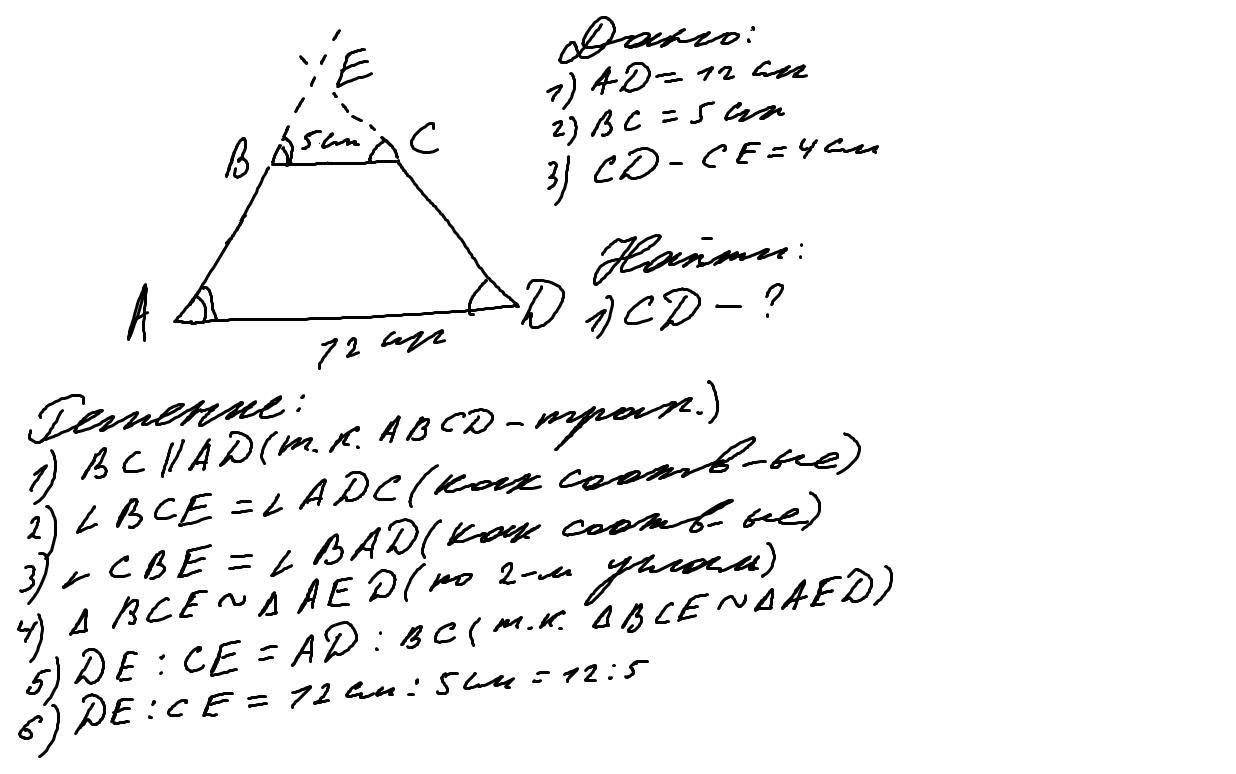 E
B
5 см
C
A
D
12 см
Дано:
1) AD = 12 см
2) BC = 5 см
3) CD - CE = 4 см
Найти:
1) CD - ?
Решение:
1) BC || AD (т.к. ABCD - трап.)
2) ∠ BCE = ∠ ADC (как соотв-ые)
3) ∠ CBE = ∠ BAD (как соотв-ые)
4) Δ BCE ~ Δ AED (по 2-м углам)
5) DE : CE = AD : BC (т.к. Δ BCE ~ Δ AED)
6) DE : CE = 12 см : 5 см = 12 : 5